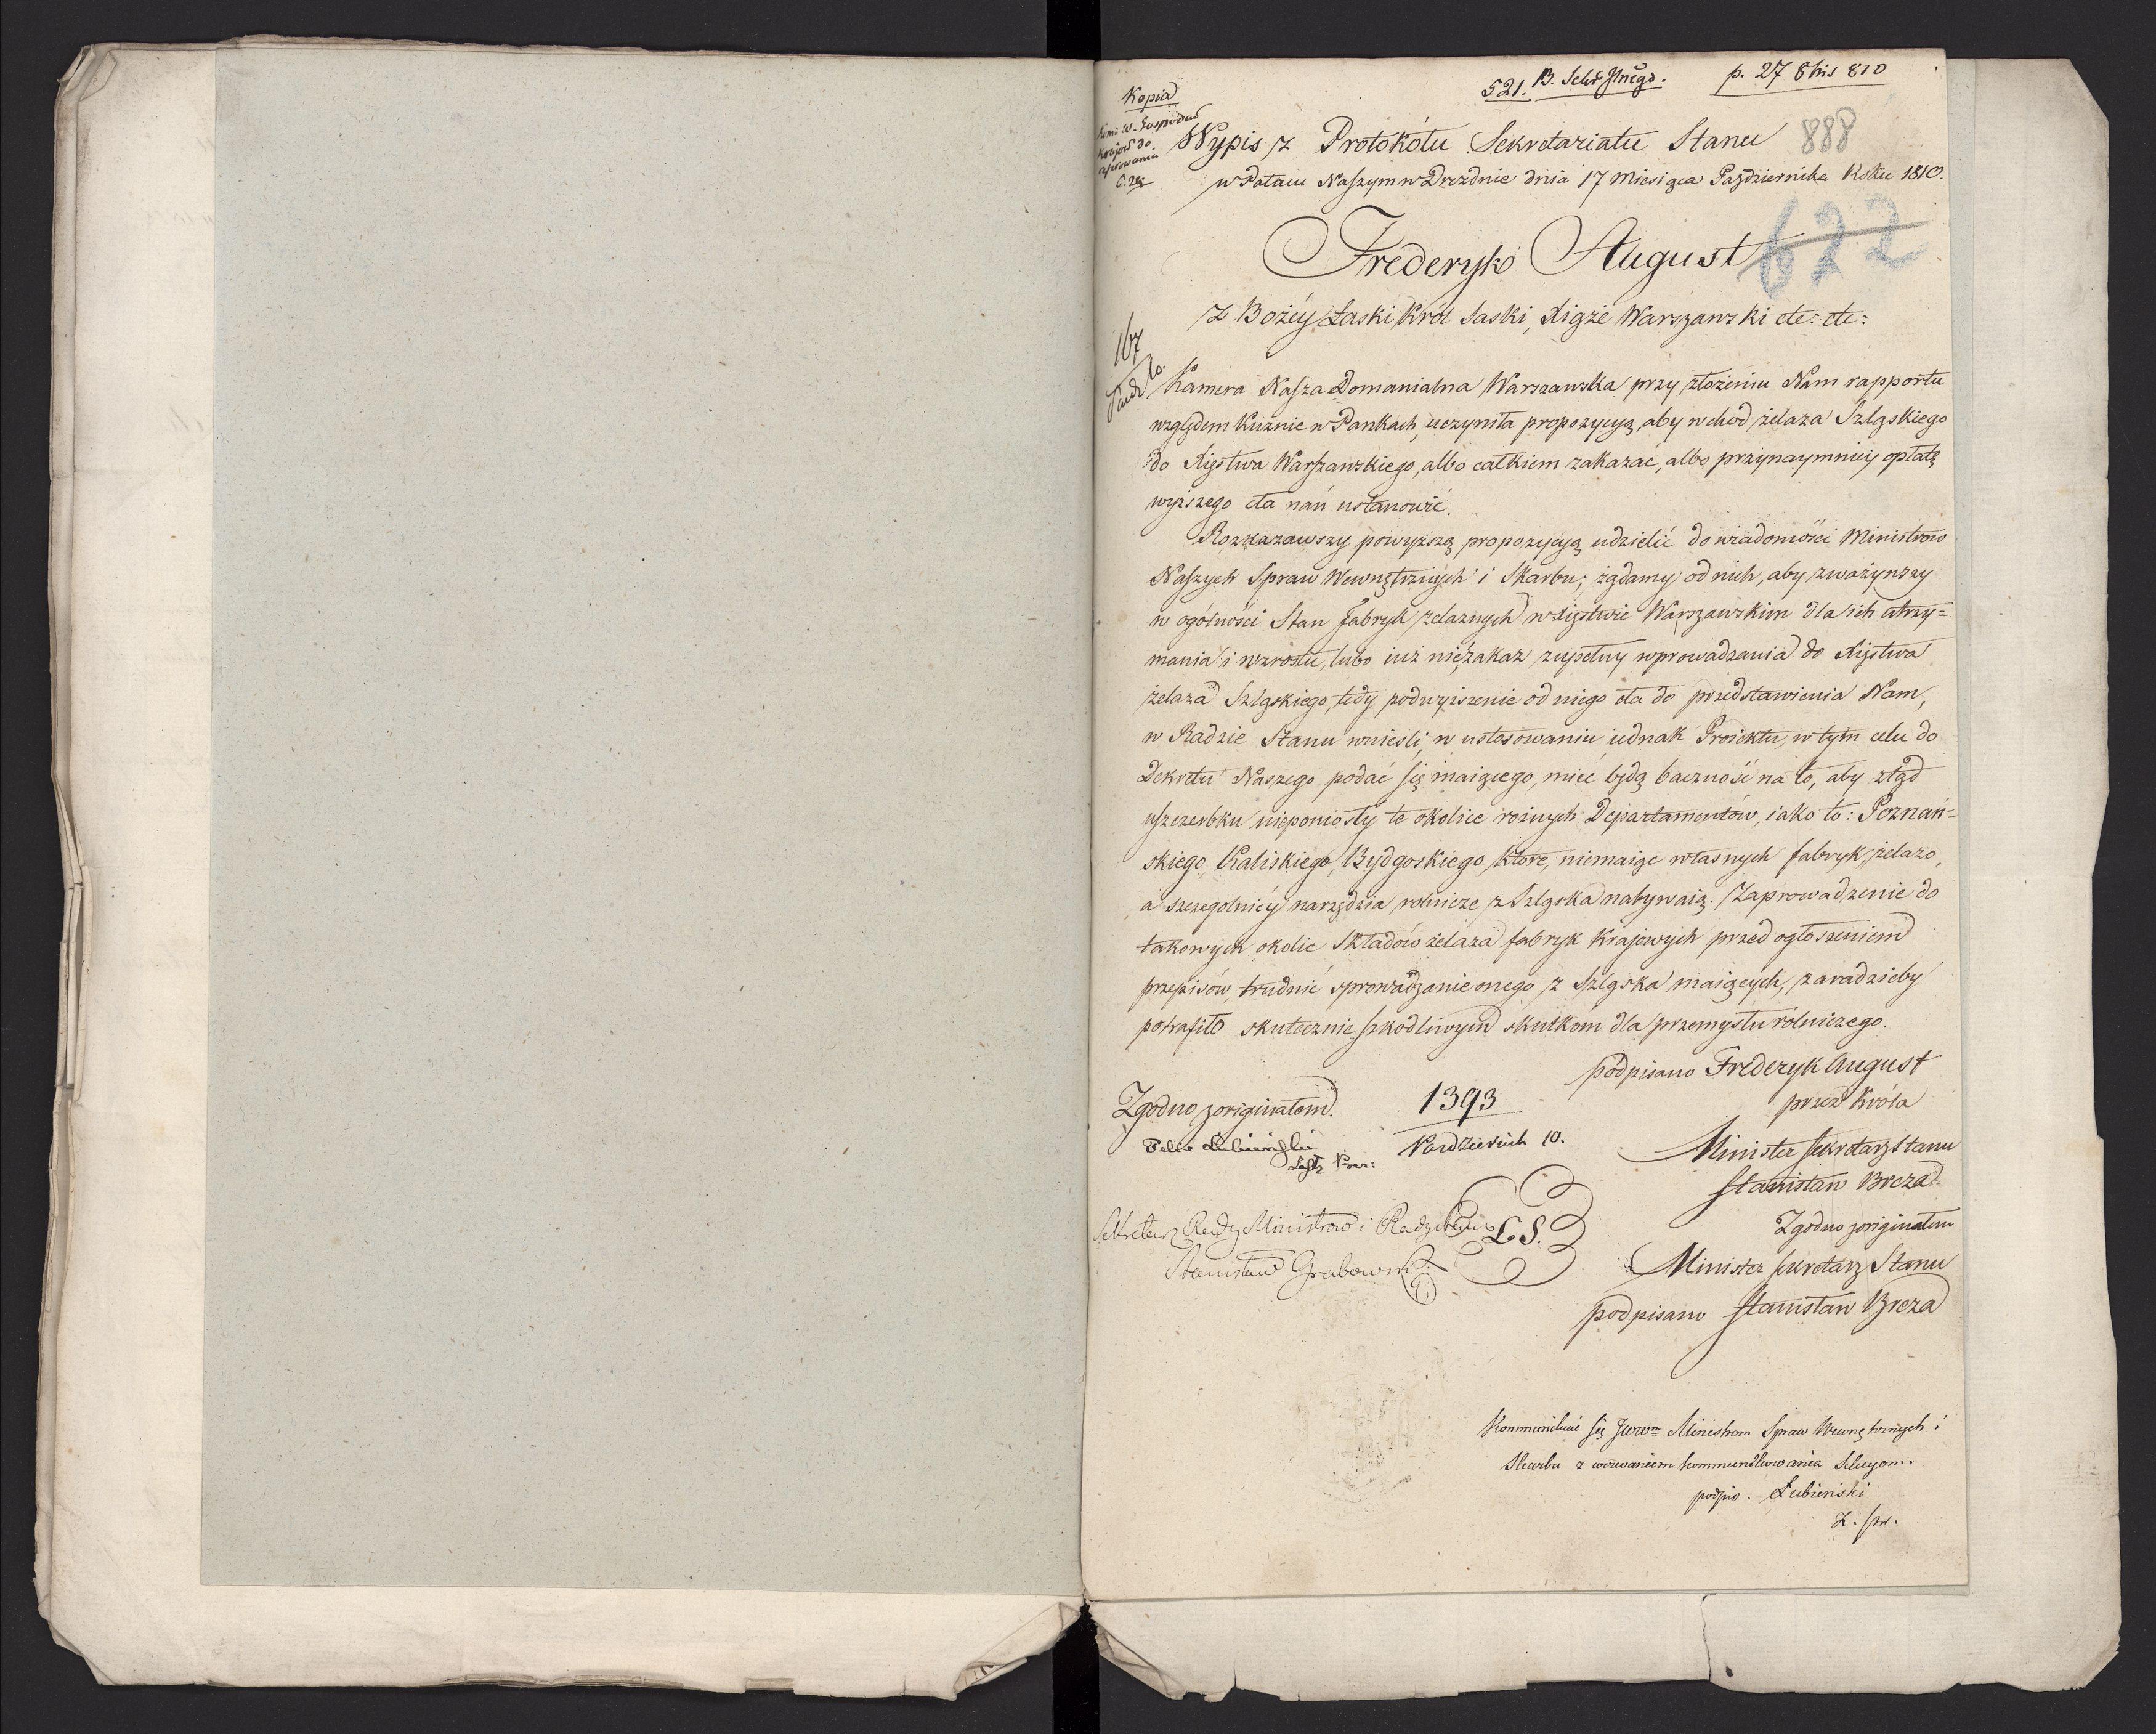 Kopia
521. B.
p. 27 8bris 810
do
Wypis z Protokółu Sekretariatu Stanu
888
w Pałacu Naszym w Dreźdnie dnia 17 Miesiąca Października Roku 1810.
Frederyk August
622
z Bożey Łaski Król Saski, Xiąże Warszawski etc: etc:
167
Kamera Nasza Domanialna Warszawska przy złożeniu Nam rapportu
względem Kuźnic w Pankach, uczyniła propozycyą, aby wchod żelaza Szląskiego
do Xięstwa Warszawskiego, albo całkiem zakazać, albo przynaymniey opłatę
wyższego cła nań ustanowić.
Rozkazawszy powyższą propozycyą udzielić do wiadomości Ministrów
Naszych Spraw Wewnętrznych i Skarbu; żądamy od nich, aby zważywszy
w ogólności Stan fabryk żelaznych w Xięstwie Warszawskim dla ich utrzy=
mania i wzrostu, lubo iuż nie zakaz zupełny wprowadzania do Xięstwa
żelaza Szląskiego, tedy podwyższenie od niego cła do przedstawienia Nam,
w Radzie Stanu wnieśli, w ustosowaniu iednak Proiektu, w tym celu do
Dekretu Naszego podać się maiącego, mieć będą baczność na to, aby ztąd
uszczerbku nieponiosły te okolice rożnych Departamentów, iako to: Poznań=
skiego, Kaliskiego, Bydgoskiego, które, niemaiąc własnych fabryk, żelazo,
a szczegolniey narzędzia rolnicze z Szląska nabywaią. Zaprowadzenie do
takowych okolic Składów żelaza fabryk Krajowych przed ogłoszeniem
przepisów, trudnić sprowadzanie onego z Szląska maiących, zaradzićby
potrafiło skutecznie szkodliwym skutkom dla przemysłu rolniczego.
podpisano Frederyk August
przez Króla
Minister Sekretarz Stanu
Stanisław Breza
Zgodno z originałem.
1393
Felix Łubieński
Pazdziernik 10.
Zgodno z originałem
Sekretarz Rady Ministrów i Rady Stanu
L. S.
Minister Sekretarz Stanu
Stanisław Grabowski
podpisano Stanisław Breza
Kommunikuie się Ministrom Spraw Wewnętrznych i
Skarbu z wezwaniem kommunikowania Sekcyom.
podpis. Łubieński